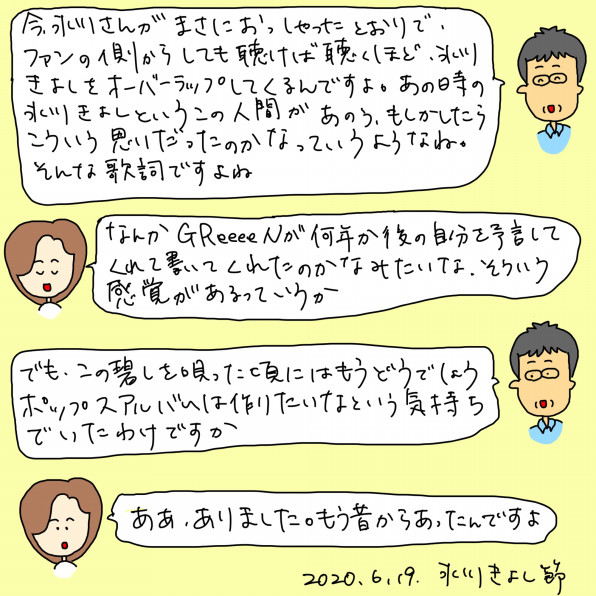 今、氷川さんがまさにおっしゃったとおりで、
ファンの側からしても聴けば聴くほど、氷川
きよしをオーバーラップしてくるんですよ。あの日時の
氷川きよしというこの人間が あのう、もしかしたら
こういう思いだったのかなっていうようなね。
そんな歌詞ですよね
なんかGReeeeNが何年か後の自分を予言して
くれて書いてくれたのかなみたいな、そういう
感覚があるっていうか
でも、この碧しを唄った頃にはもうどうでしょう
ポップスアルバムは作りたいなという気持ち
でいたわけですか
ああ、ありました。もう昔からあったんですよ
2020.6.19. 氷川きよし節